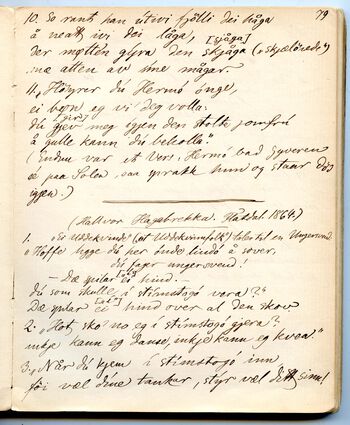 79
10. So rant han utivi fjölli dei håga
å neatt ivi dei låga, [sjåga]
Der møtten gjyra den skjåga
mæ atten av sine mågar.
11. "Höyrer du Hermó unge,
ei bøn eg vi deg volla:
du gjev meg igjen den stolt jomfrú
å gulle kann du beholla."
(Endnu var et Vers: Hermó bad Gyveren
se paa Solen, saa sprakk hun og staar der
igjen.)
(Hallvor Hagebrekka. Flatdal 1864.)
1. "Ei Uddekvinde" (et Uddekvinnfolk) taler til en Ungersvend
"Höffe ligge du her unde lindó å søver,
du fager ungersvend!
— Dæ spilar ei hind. —
Du som skulle i stimstogó vera?"
Dæ spilar ei hind over al den skov
2. "Hot sko no eg i stimstogó gjera?
inkje kann eg danse, inkje kann eg kvea."
3. "Når du kjem i stimstogó inn
föi væl dine tankar, styr væl ditt sinn!